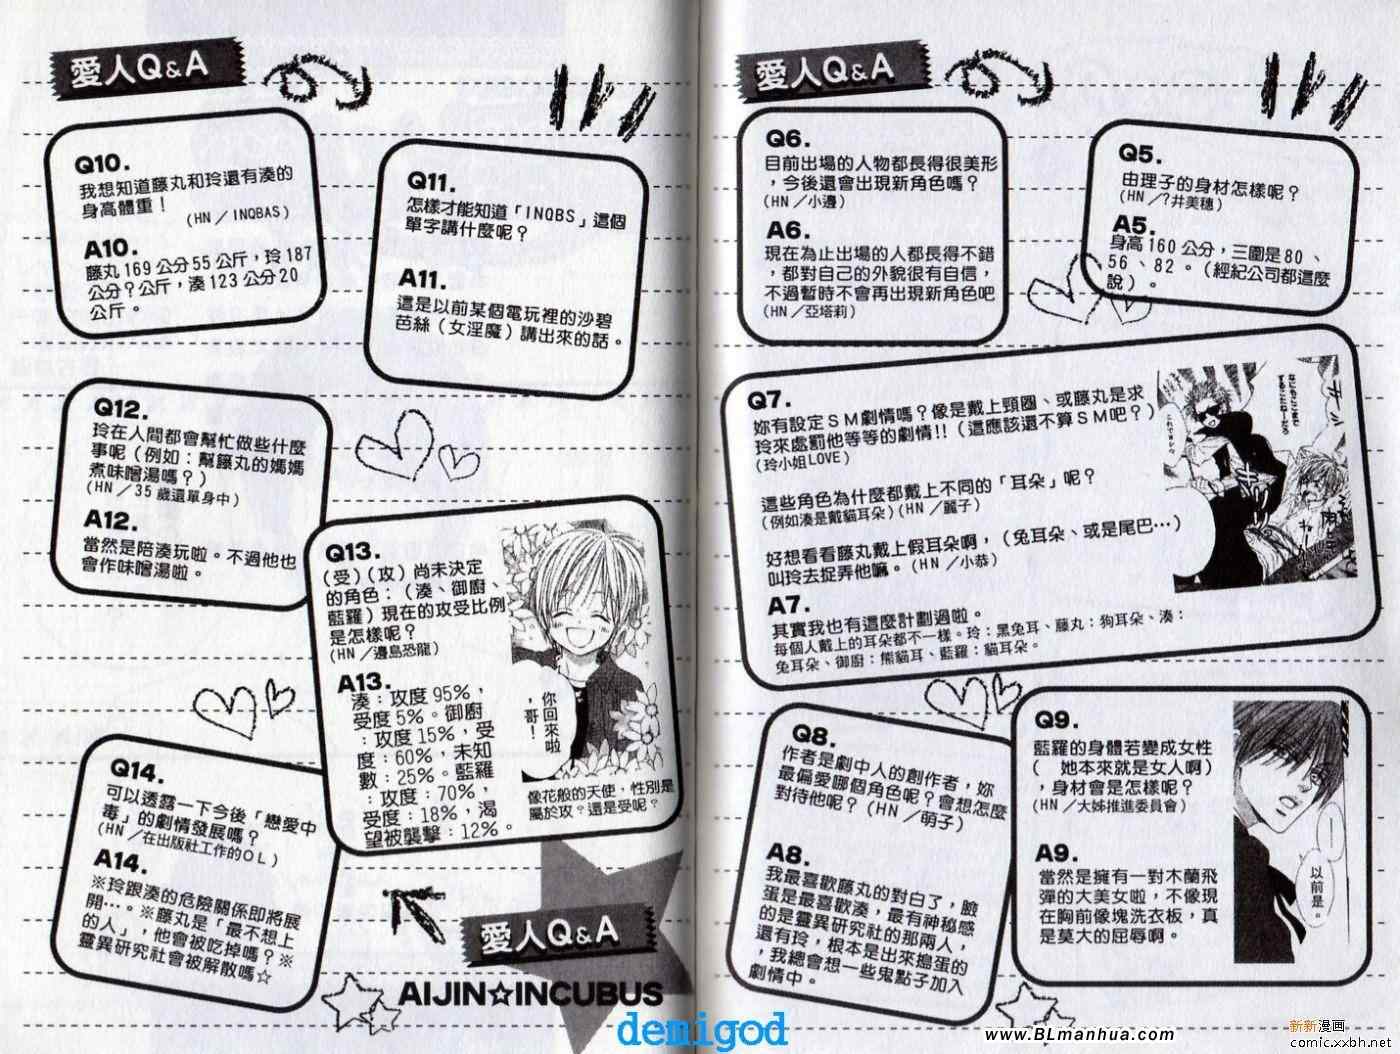 愛人Q&A
Q5.
由理子的身材怎樣呢？
(HN／7井美穗)
A5.
身高160公分，三圍是80、
56、82。（經紀公司都這麼
說）。
Q6.
目前出場的人物都長得很美形
，今後還會出現新角色嗎？
(HN／小邊)
A6.
現在為止出場的人都長得不錯
，都對自己的外貌很有自信，
不過暫時不會再出現新角色吧
(HN／亞塔莉)
Q7.
妳有設定ＳＭ劇情嗎？像是戴上頸圈、或藤丸是求
玲來處罰他等等的劇情!!（這應該還不算ＳＭ吧？）
(玲小姐LOVE)
這些角色為什麼都戴上不同的「耳朵」呢？
(例如湊是戴貓耳朵)(HN／麗子)
好想看看藤丸戴上假耳朵啊，（兔耳朵、或是尾巴…）
叫玲去捉弄他嘛。(HN／小恭)
A7.
其實我也有這麼計劃過啦。
每個人戴上的耳朵都不一樣。玲：黑兔耳、藤丸：狗耳朵、湊：
兔耳朵、御廚：熊貓耳、藍羅：貓耳朵。
なにもここまで
することねーだろ
Q8.
作者是劇中人的創作者，妳
最偏愛哪個角色呢？會想怎麼
對待他呢？(HN／萌子)
A8.
我最喜歡藤丸的對白了，臉
蛋是最喜歡湊，最有神秘感
的是靈異研究社的那兩人，
還有玲，根本是出來搗蛋的
，我總會想一些鬼點子加入
劇情中。
Q9.
藍羅的身體若變成女性
（　她本來就是女人啊）
，身材會是怎樣呢？
(HN／大姊推進委員會)
A9.
當然是擁有一對木蘭飛
彈的大美女啦，不像現
在胸前像塊洗衣板，真
是莫大的屈辱啊。
以前是。
愛人Q&A
Q10.
我想知道藤丸和玲還有湊的
身高體重！
(HN／INQBAS)
A10.
藤丸169公分55公斤，玲187
公分？公斤，湊123公分20
公斤。
Q11.
怎樣才能知道「INQBS」這個
單字講什麼呢？
A11.
這是以前某個電玩裡的沙碧
芭絲（女淫魔）講出來的話。
Q12.
玲在人間都會幫忙做些什麼
事呢（例如：幫籐丸的媽媽
煮味噌湯嗎？）
(HN／35歲還單身中)
A12.
當然是陪湊玩啦。不過他也
會作味噌湯啦。
Q13.
(受)(攻)尚未決定
的角色：（湊、御廚、
藍羅）現在的攻受比例
是怎樣呢？
(HN／邊島恐龍)
A13.
湊：攻度95%，
受度5%。御廚
：攻度15%，受
度：60%，未知
數：25%。藍羅
：攻度：70%，
受度：18%，渴
望被襲擊：12%。
你回來啦
，哥！
像花般的天使，性別是
屬於攻？還是受呢？
Q14.
可以透露一下今後「戀愛中
毒」的劇情發展嗎？
(HN／在出版社工作的ＯＬ)
A14.
※玲跟湊的危險關係即將展
開…。※藤丸是「最不想上
的人」，他會被吃掉嗎？※
靈異研究社會被解散嗎☆
愛人Q&A
AIJIN☆INCUBUS
demigod
www.BLmanhua.com
新新漫画
comic.xxbh.net